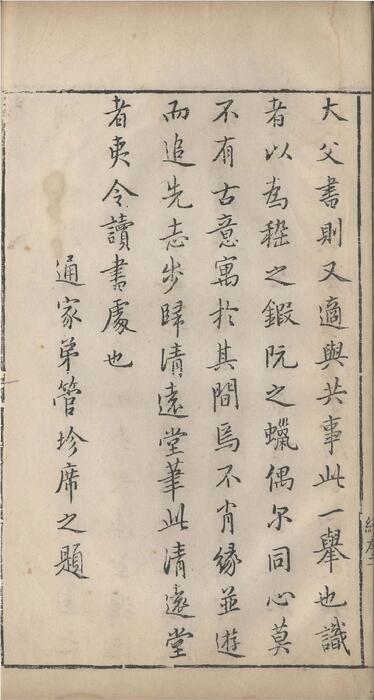 大父書則又適與共事此一舉也識
者以為嵇之鍛阮之蠟偶尔同心莫
不有古意寓於其間焉不肖緣並遊
而追先志步歸清遠堂筆此清遠堂
者夷令讀書處也
通家弟管珍席之題